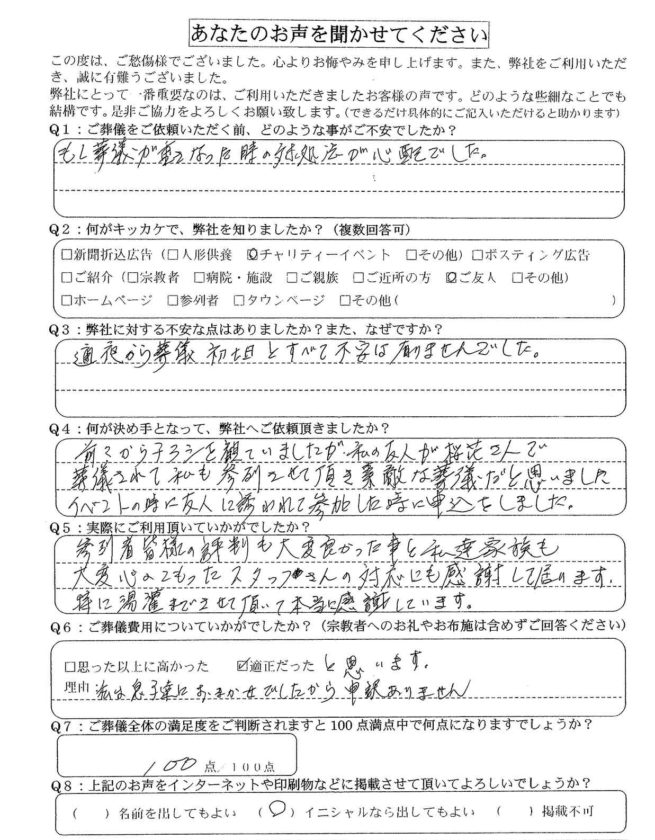 あなたのお声を聞かせてください
この度は、ご愁傷様でございました。心よりお悔やみを申し上げます。また、弊社をご利用いただ
き、誠に有難うございました。
弊社にとって一番重要なのは、ご利用いただきましたお客様の声です。どのような些細なことでも
結構です。是非ご協力をよろしくお願い致します。(できるだけ具体的にご記入いただけると助かります)
Q1：ご葬儀をご依頼いただく前、どのような事がご不安でしたか？
もし葬儀が重なった時の対処法が心配でした。
Q2：何がキッカケで、弊社を知りましたか？（複数回答可）
□新聞折込広告（□人形供養 ☑チャリティーイベント □その他）□ポスティング広告
□ご紹介（□宗教者 □病院・施設 □ご親族 □ご近所の方 ☑ご友人 □その他）
□ホームページ □参列者 □タウンページ □その他( )
Q3：弊社に対する不安な点はありましたか？また、なぜですか？
通夜から葬儀 初七日とすべて不安は有りませんでした。
Q4：何が決め手となって、弊社へご依頼頂きましたか？
前々からチラシを観ていましたが、私の友人が桜花さんで
葬儀されて私も参列させて頂き素敵な葬儀だと思いました
イベントの時に友人に誘われて参加した時に申込をしました。
Q5：実際にご利用頂いていかがでしたか？
参列者皆様の評判も大変良かった事と私達家族も
大変心のこもったスタッフさんの対応にも感謝して居ります。
特に湯灌までさせて頂いて本当に感謝しています。
Q6：ご葬儀費用についていかがでしたか？（宗教者へのお礼やお布施は含めずご回答ください）
□思った以上に高かった ☑適正だった と思います。
理由 私は息子達におまかせでしたから申訳ありません
Q7：ご葬儀全体の満足度をご判断されますと100点満点中で何点になりますでしょうか？
100点／100点
Q8：上記のお声をインターネットや印刷物などに掲載させて頂いてよろしいでしょうか？
（ ）名前を出してもよい （○）イニシャルなら出してもよい （ ）掲載不可